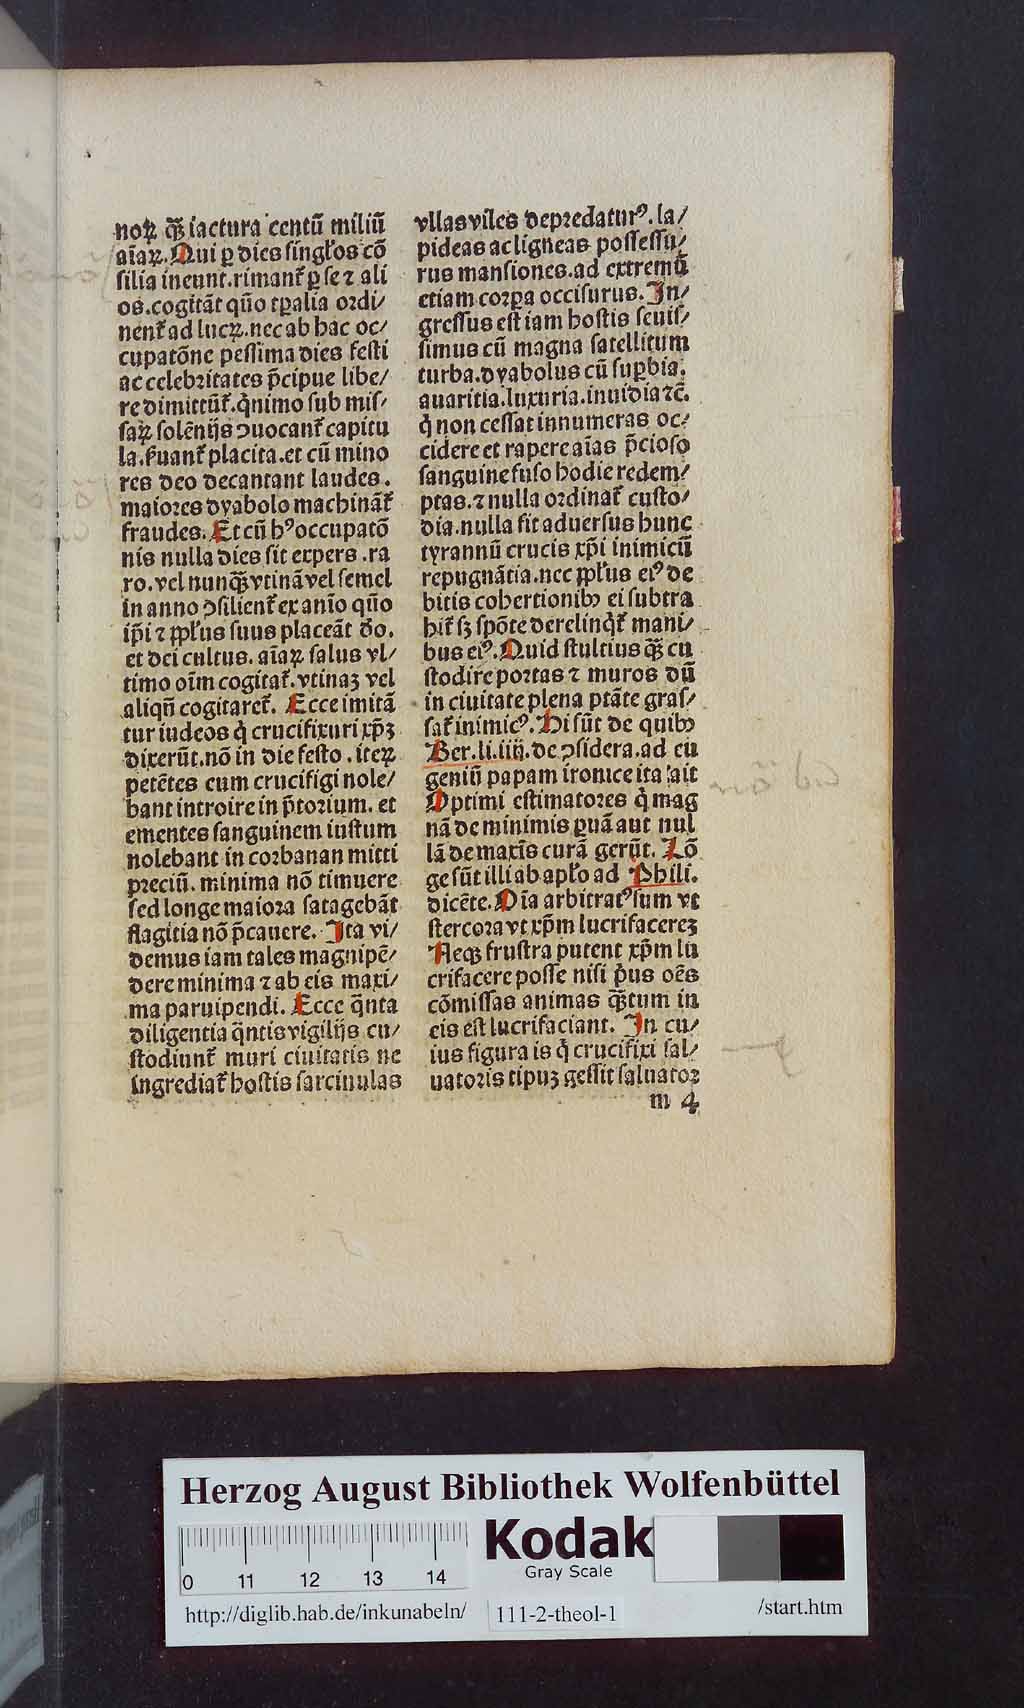 noꝝ q̃ꝫ iactura centũ miliũ
aĩaꝝ. Qui ꝑ dies singl'os cõ
silia ineunt. rimant᷑ ꝑ se ⁊ ali
os. cogitãt qũo tꝑalia ordi/
nent᷑ ad lucꝝ. nec ab hac oc/
cupatõne pessima dies festi
ac celebritates p̃cipue libe/
re dimittũt᷑. q̇nimo sub mis/
saꝝ solẽnijs ꝯuocant᷑ capitu
la. ẜuant᷑ placita. et cũ mino
res deo decantant laudes.
maiores dyabolo machinãt᷑
fraudes. Et cũ hꝰ occupatõ
nis nulla dies sit expers. ra
ro. vel nunq̃ꝫ vtinã vel semel
in anno ꝯsilient᷑ ex anĩo qũo
ip̃i ⁊ ꝓpl'us suus placeãt d̃o.
et dei cultus. aĩaꝝ salus vl/
timo oĩm cogitat᷑. vtinaꝫ vel
aliqñ cogitaret᷑. Ecce imitã
tur iudeos q̇ crucifixuri xp̃ꝫ
dixerũt. nõ in die festo. iteꝝ
petẽtes eum crucifigi nole/
bant introire in p̃torium. et
ementes sanguinem iustum
nolebant in corbanan mitti
preciũ. minima nõ timuere
sed longe maiora satagebãt
flagitia nõ p̃cauere. Ita vi/
demus iam tales magnipẽ/
dere minima ⁊ ab eis maxi/
ma paruipendi. Ecce q̃nta
diligentia q̃ntis vigilijs cu/
stodiunt᷑ muri ciuitatis ne
ingrediat᷑ hostis sarcinulas
vllas viles depredaturꝰ. la/
pideas ac ligneas possessu/
rus mansiones. ad extremũ
etiam corꝑa occisurus. In/
gressus est iam hostis seuis/
simus cũ magna satellitum
turba. dyabolus cũ suꝑbia.
auaritia. luxuria. inuidia ⁊c̃.
q̇ non cessat innumeras oc/
cidere et rapere aĩas p̃cioso
sanguine fuso hodie redem/
ptas. ⁊ nulla ordinat᷑ custo/
dia. nulla fit aduersus hunc
tyrannũ crucis xp̃i inimicũ
repugnãtia. nec ꝓpl'us eiꝰ de
bitis cohertionibꝰ ei subtra
hit᷑ sꝫ spõte derelinq̇t᷑ mani/
bus eiꝰ. Quid stultius q̃ꝫ cu
stodire portas ⁊ muros dũ
in ciuitate plena ptãte gras/
sat᷑ inimicꝰ. Hi sũt de quibꝰ
Ber. li. iiij. de ꝯsidera. ad eu
geniũ papam ironice ita ait
Optimi estimatores q̇ mag
nã de minimis ꝑuã aut nul
lã de maxĩs curã gerũt. Lõ
ge sũt illi ab apl'o ad Phili.
dicẽte. Oĩa arbitratꝰ sum vt
stercora vt xp̃m lucrifacereꝫ
Neqꝫ frustra putent xp̃m lu
crifacere posse nisi p̃us oẽs
cõmissas animas q̃ꝫtum in
eis est lucrifaciant. In cu/
ius figura is q̇ crucifixi sal/
uatoris tipuꝫ gessit saluator
m 4
Herzog August Bibliothek Wolfenbüttel
Kodak
Gray Scale
0 11 12 13 14
http://diglib.hab.de/inkunabeln/
111-2-theol-1
/start.htm